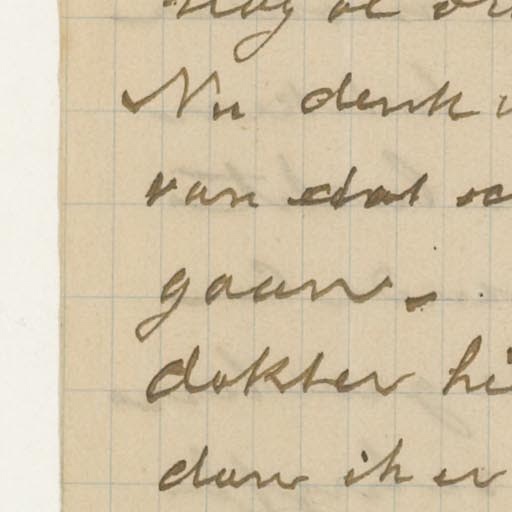 Nu denk
van dat
gaan.
dokter
dan ik er